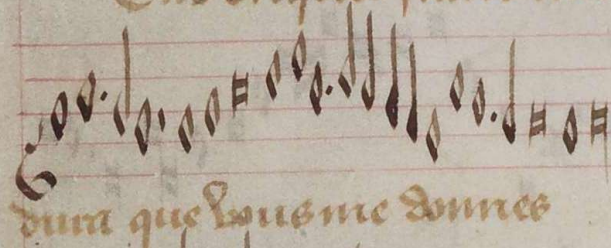 dura que vous me donnes